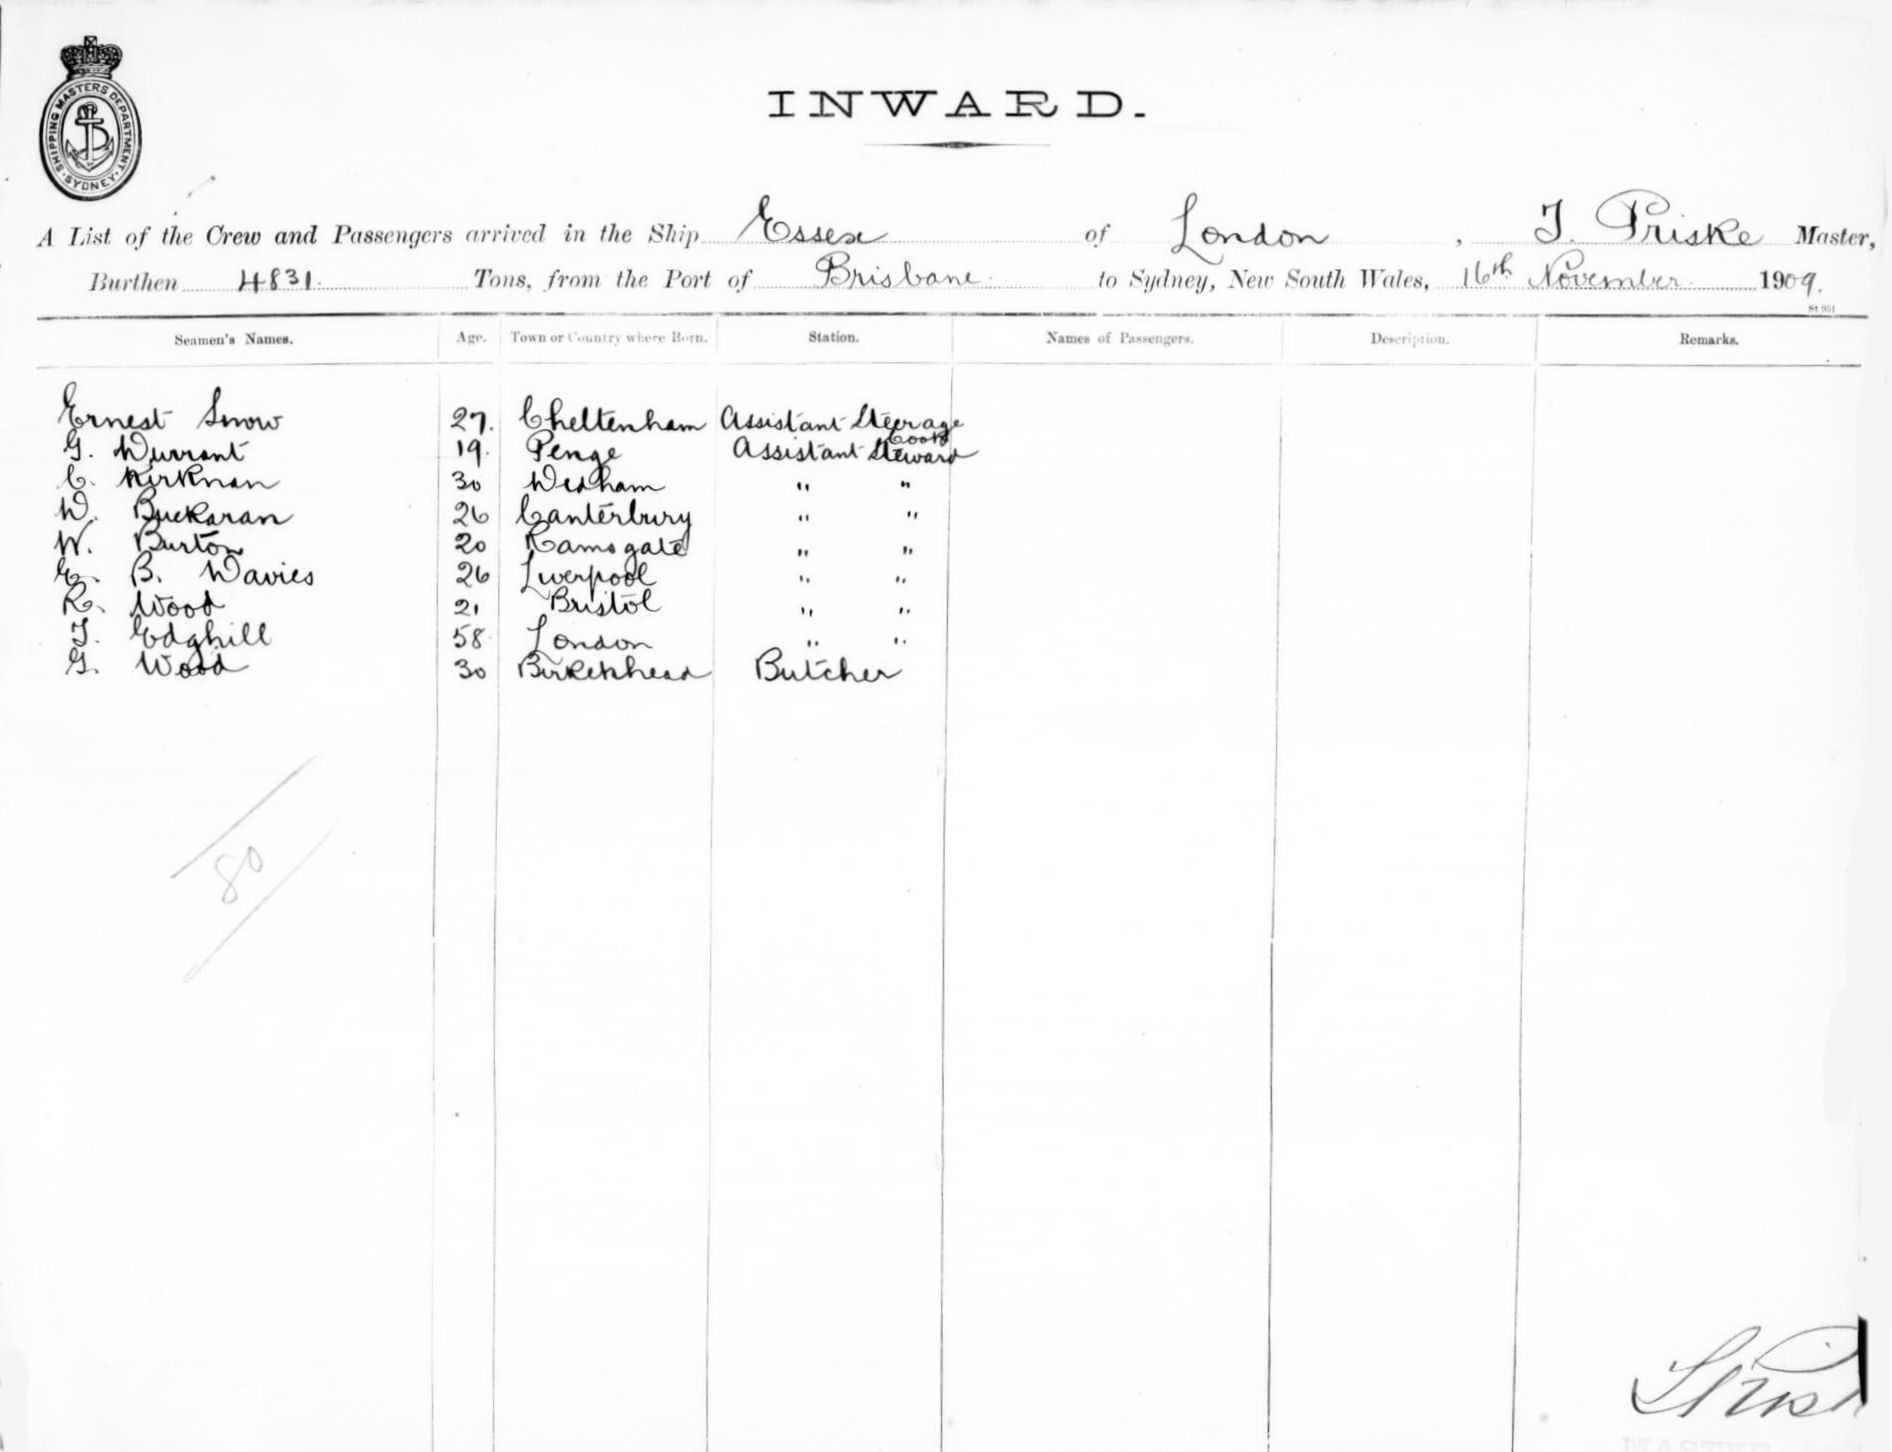 SHIPPING MASTERS DEPARTMENT
SYDNEY
INWARD.
A List of the Crew and Passengers arrived in the Ship Essex of London, J. Priske Master,
Burthen 4831. Tons, from the Port of Brisbane to Sydney, New South Wales, 16th November 1909.
St 951
Seamen's Names. Age. Town or Country where Born. Station. Names of Passengers. Description. Remarks.
Ernest Snow 27. Cheltenham Assistant Steerage Cook
G. Durrant 19. Penge Assistant Steward
C. Kirknan 30 Westham " "
W. Buckaran 26 Canterbury " "
W. Burton 20 Ramsgate " "
E. B. Davies 26 Liverpool " "
R. Wood 21 Bristol " "
J. Edghill 58 London " "
G. Wood 30 Birkenhead Butcher
80
MASTER